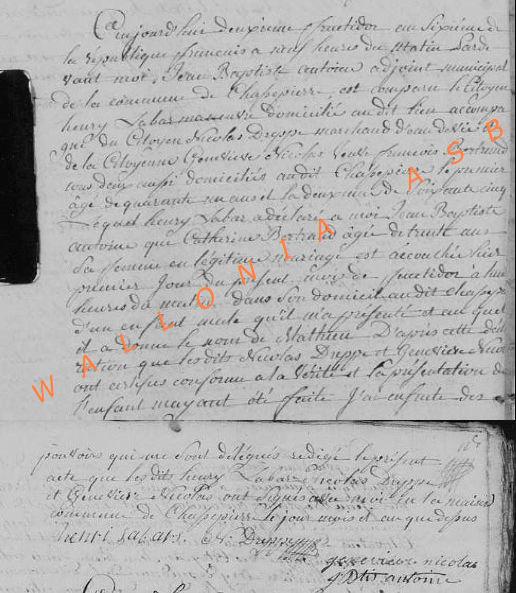 Cejourd'huy deuxieme fructidor an Sixieme de
la republique francaise a neuf heures du Matin Parde
vant moi, Jean Baptiste antoine adjoint municipal
de la commune de Chassepierre, est comparu le Citoyen
henry Labar manuvre Domicilié audit lieu accompa
gné du Citoyen Nicolas Dreppe marchand d'eau de vie et
de la Citoyenne Genevieve Nicolas veuve francois Bertrand
tous deux aussi domiciliés audit Chassepierre le premier
âgé de quarante un ans et la deuxieme de Soixante cinq
Lequel henry Labar a déclaré a moi Jean Baptiste
antoine que Catherine Bertrand âgée de trente ans
Sa femme en légitime mariage est accouchée hier
premier Jour du présent mois de fructidor a huit
heures du matin dans Son domicile audit chassepe
d'un enfant male qu'il m'a présenté et au quel
il a donné le nom de Mathieu D'apres cette décla
ration que lesdits Nicolas Dreppe et Genevieve Nicolas
ont certifiés conforme a la Vérité et la présentation de
l'enfant m'ayant été faite J'ai en suite des
pouvoirs qui me Sont délégués redigé le présent
acte que lesdit henry Labar Nicolas Dreppe
et Genevieve Nicolas ont Signés avec moi en la maison
commune de Chassepierre le jour mois et an que dessus
henri Labar N. Dreppe
genevieve nicolas
antoine
WALLONIA ASB